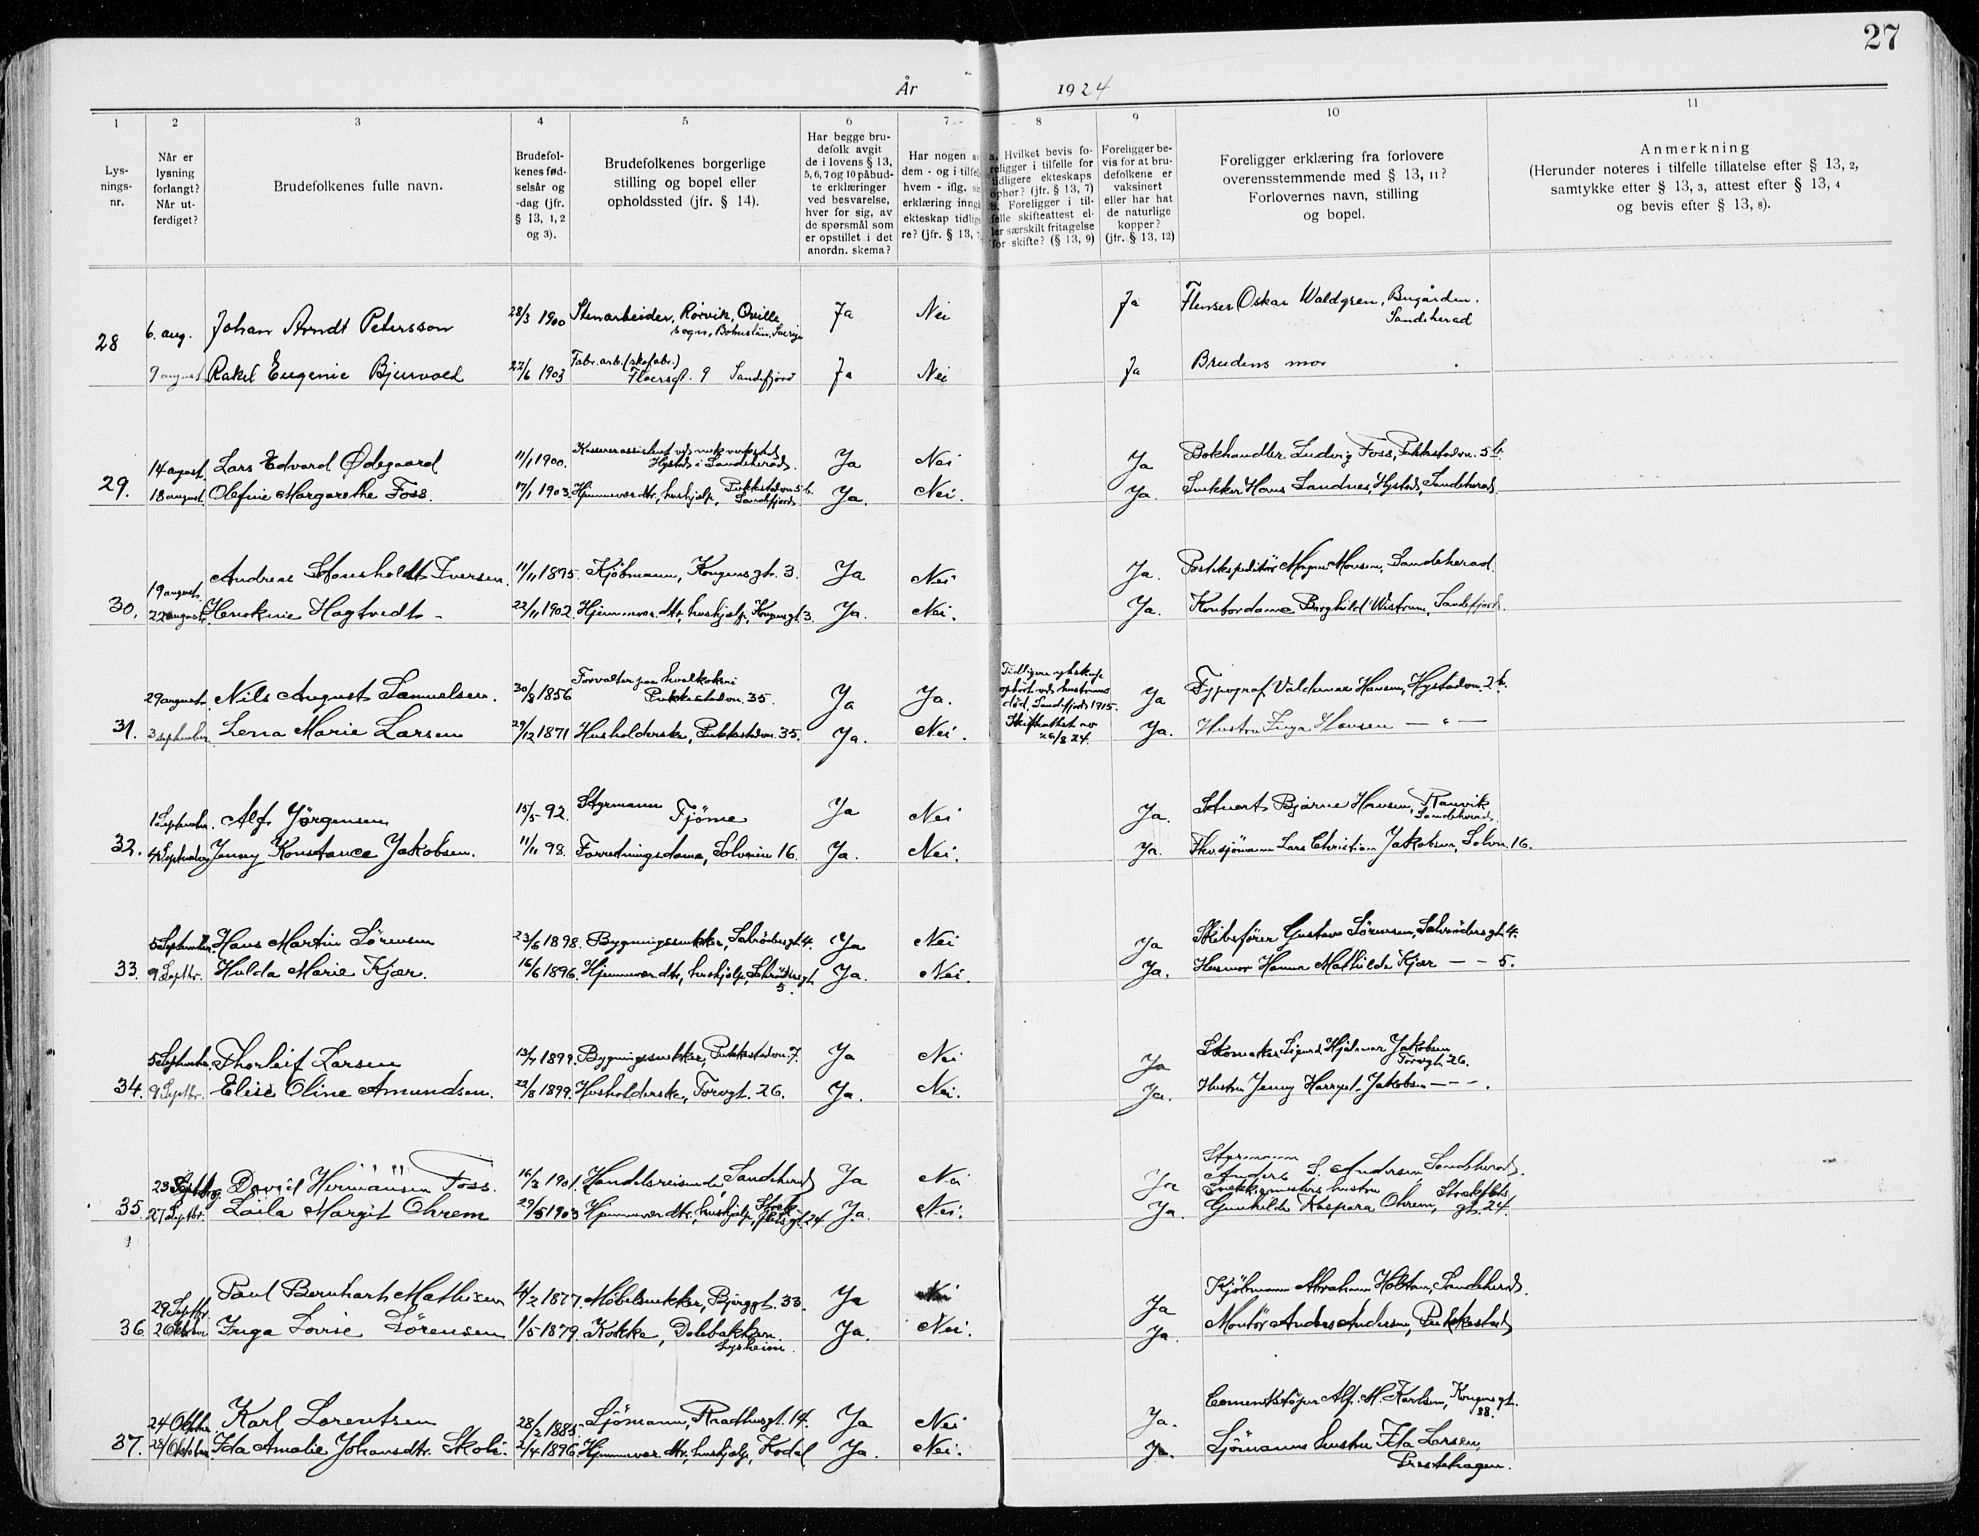 27
År 1924
1 2 3 4 5 6 7 8 9 10 11
Lys-
nings-
nr.
Når er
lysning
forlangt?
Når ut-
ferdiget?
Brudefolkenes fulle navn.
Brudefol-
kenes fød-
selsår og
-dag (jfr.
§ 13, 1, 2
og 3).
Brudefolkenes borgerlige
stilling og bopel eller
opholdssted (jfr. § 14).
Har begge bru-
defolk avgit
de i lovens § 13,
5, 6, 7 og 10 påbud-
te erklæringer
ved besvarelse,
hver for sig, av
de spørsmål som
er opstillet i det
anordn. skema?
Har nogen a
dem - og i tilfe
hvem - iflg. s
erklæring inng
ekteskap tidlig
re? (jfr. § 13,
a. Hvilket bevis fo-
religger i tilfelle for
tidligere ekteskaps
ophør? (jfr. § 13, 7)
b. Foreligger i til-
felle skifteattest el-
ler særskilt fritagelse
for skifte? (§ 13, 9)
Foreligger be-
vis for at bru-
defolkene er
vaksinert
eller har hat
de naturlige
kopper?
(jfr. § 13, 12)
Foreligger erklæring fra forlovere
overensstemmende med § 13, 11?
Forlovernes navn, stilling
og bopel.
Anmerkning
(Herunder noteres i tilfelle tillatelse efter § 13, 2,
samtykke efter § 13, 3, attest efter § 13, 4
og bevis efter § 13, 8).
28 6. aug. Johan Arndt Petersson 28/3 1900 Stenarbeider, Rørvik, Qville Ja Nei Ja Flenser Oskar Waldgren, Bugården.
sogn, Bohuslän, Sverige Sandeherad
9 august Rakel Eugenie Bjurvold 22/6 1903 Fabr. arb. (skofabr.) Ja Nei Ja Brudens mor
Floersgt. 9 Sandefjord
29. 14 august Lars Edvard Ødegaard 11/1 1900. Kassererassistent ved mek. verksted Ja Nei Ja Bokhandler Ludvig Foss, Pukkestadvn. 5b.
Hystad i Sandeherad.
18 august Olefine Margarethe Foss. 17/1 1903. Hjemmevær. dtr, hushjelp, Pukkestadvn 5b. Ja. Nei. Ja Snekker Hans Sandnes, Hystad, Sandeherad
Sandefjord
30. 19 august Andreas Stousholdt Iversen. 11/11 1895. Kjöbmann, Kongensgt. 3. Ja Nei Ja. Postekspeditör Magne Monsen, Sandeherad.
22 august. Henokine Hagtvedt - 22/11 1902. Hjemmevær. dtr, hushjelp, Kongensgt 3. Ja. Nei. Ja. Kontordame Borghild Wistrum, Sandefjord.
31. 29 august Nils August Samuelsen. 30/8 1856 Forvalter paa hvalkokeri Ja Ja. Tidligere ekteskap Ja Typograf Valdemar Hansen, Hystadvn. 2b.
Pukkestadvn. 35. ophørt ved hustruens
død, Sandefjord 1915.
3 september Lena Marie Larsen 29/12 1871 Husholderske, Pukkestadvn. 35. Ja. Nei. Skifteattest av Ja. Hustru Inga Hansen — " —
26/8 24.
32. 1. September. Alf Jörgensen 15/5 92. Styrmann Tjöme Ja Nei Ja. Stuert Bjarne Hansen, Ranvik
Sandeherad.
4 September Jenny Konstance Jakobsen. 11/11 98. Forretningsdame, Solveien 16. Ja. Nei. Ja. Fhv. sjömann Lars Christian Jakobsen, Solvn. 16.
33. 5 September Hans Martin Sörensen 23/6 1898. Bygningssnekker, Schrödersgt 4. Ja Nei Ja Skibsförer Gustav Sörensen, Schrödersgt 4.
9 Septbr. Hulda Marie Kjær. 16/6 1896. Hjemmevær dtr, hushjelp, Schrödersgt Ja. Nei. Ja. Husmor Hanna Mathilde Kjær — — 5.
5.
34. 5 September Thorleif Larsen 13/7 1899. Bygningssnekker, Pukkestadvn. 7. Ja Nei Ja Skomaker Sigurd Hjalmar Jakobsen
Torvgt 26.
9 Septbr. Elise Oline Amundsen. 22/8 1899. Husholderske, Torvgt. 26. Ja. Nei. Ja. Hustru Jenny Jakobsen — — .
35. 23 Septbr David Hermansen Foss. 16/2 1901. Handelsreisende Sandeherad Ja Nei Ja Styrmann
Anders S. Andersen, Sandeherad.
27 Septbr. Laila Margit Ohrem 29/5 1903 Hjemmevær dtr, hushjelp, Stock- Ja. Nei. Ja. Snekkermesters hustru Stockflets
fletsgt. 24 Gunhilda Kaspara Ohrem, gt. 24.
36. 29 Septbr Paul Bernhart Mathisen 14/2 1877. Möbelsnekker, Bjerggt. 33. Ja Nei Ja Kjöbmann Abraham Holtan, Sandeherad.
2 Oktober Inga Lovise Sörensen 1/5 1879. Kokke, Dölebakken. Ja. Nei. Ja. Montör Anders Andersen, Pukkestad
Lysheim.
37. 24 Oktober Karl Lorentsen 28/2 1885. Sjömann, Raadhusgt. 14. Ja Nei Ja. Cementstöper Alf. M. Karlsen, Kongensgt.
88.
28 Oktober Ida Amalie Johansdtr. Skoli. 2/4 1896 Hjemmevær. dtr. hushjelp, Kodal Ja. Nei. Ja. Sjömanns hustru Ida Larsen,
Prestehagen.